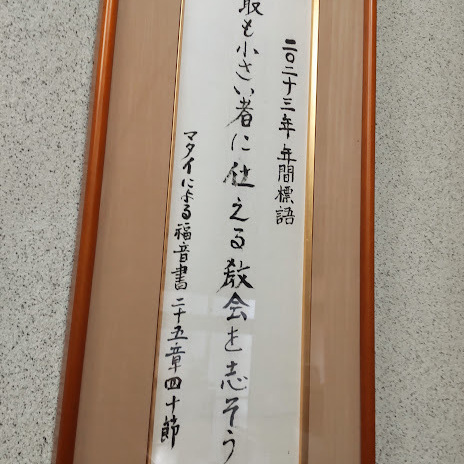 二〇二十三年 年間標語
最も小さい者に仕える教会を志そう
マタイによる福音書 二十五章四十節